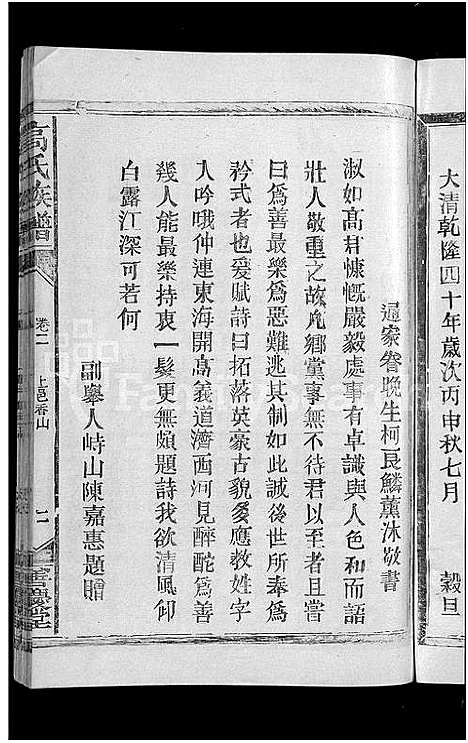 大清乾隆四十年歲次丙申秋七月　穀旦
通家眷晚生柯良鱗薰沐敬書
淑如高君慷慨嚴毅處事有卓識與人色和而語
壯人敬重之故凡鄉黨事無不待君以至者且嘗
曰為善最樂為惡難逃其制如此誠後世所奉為
矜式者也爰賦詩曰拓落英豪古貌多應教姓字
人吟哦仲連東海開高義道濟西河見醉酡為善
幾人能最樂持衷一髮更無頗題詩我欲清風仰
白露江深可若何
副舉人峙山陳嘉惠題贈
高氏族譜
卷二
上邑香山
二
善慶堂